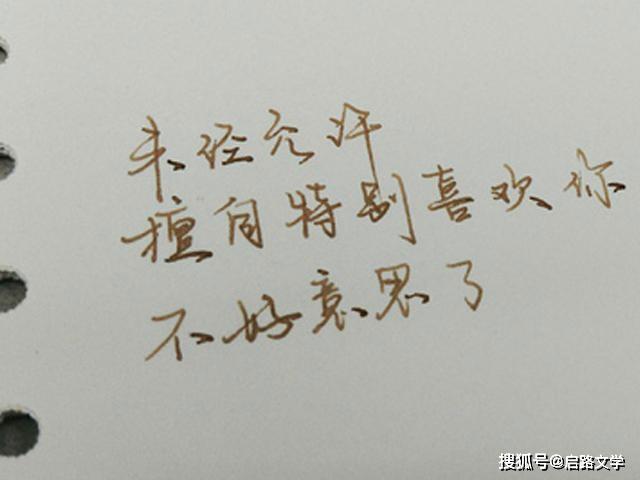 未经允许
擅自特别喜欢你
不好意思了
搜狐号@启路文学